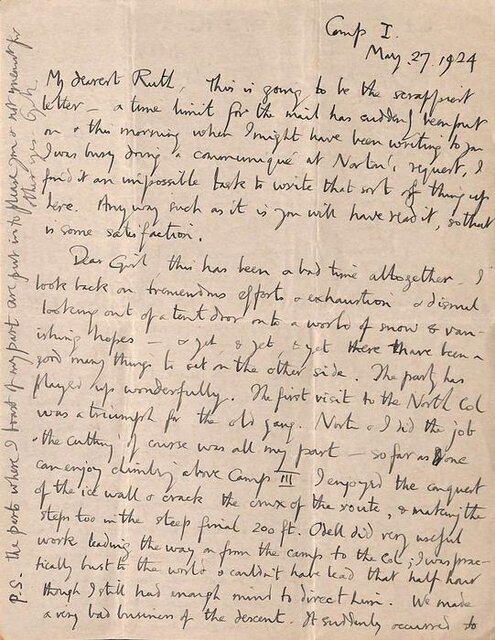 Camp I.
May. 27. 1924
My dearest Ruth, This is going to be the scrappiest
letter – a time limit for the mail has suddenly been put
on & this morning when I might have been writing to you
I was busy doing a communiqué at Norton's request, I
find it an impossible task to write that sort of thing up
here. Anyway such as it is you will have read it, so that
is some satisfaction.
Dear Girl, this has been a bad time altogether. I
look back on tremendous efforts & exhaustion & dismal
looking out of a tent door onto a world of snow & van-
ishing hopes – & yet, & yet, & yet there have been a
good many things to set on the other side. The party has
played up wonderfully. The first visit to the North Col
was a triumph for the old gang. Norton & I did the job
& the cutting of course was all my part – so far as one
can enjoy climbing above Camp III I enjoyed the conquest
of the ice wall & crack, the crux of the route, & making the
steps too in the steep final 200 ft. Odell did very useful
work leading the way on from the camp to the Col; I was prac-
tically bust to the world & couldn't have lead that half hour
though I still had enough mind to direct him. We made
a very bad business of the descent. It suddenly occurred to
P.S. The parts where I boast of my part are put in to please you & not meant for
other eyes. G.M.